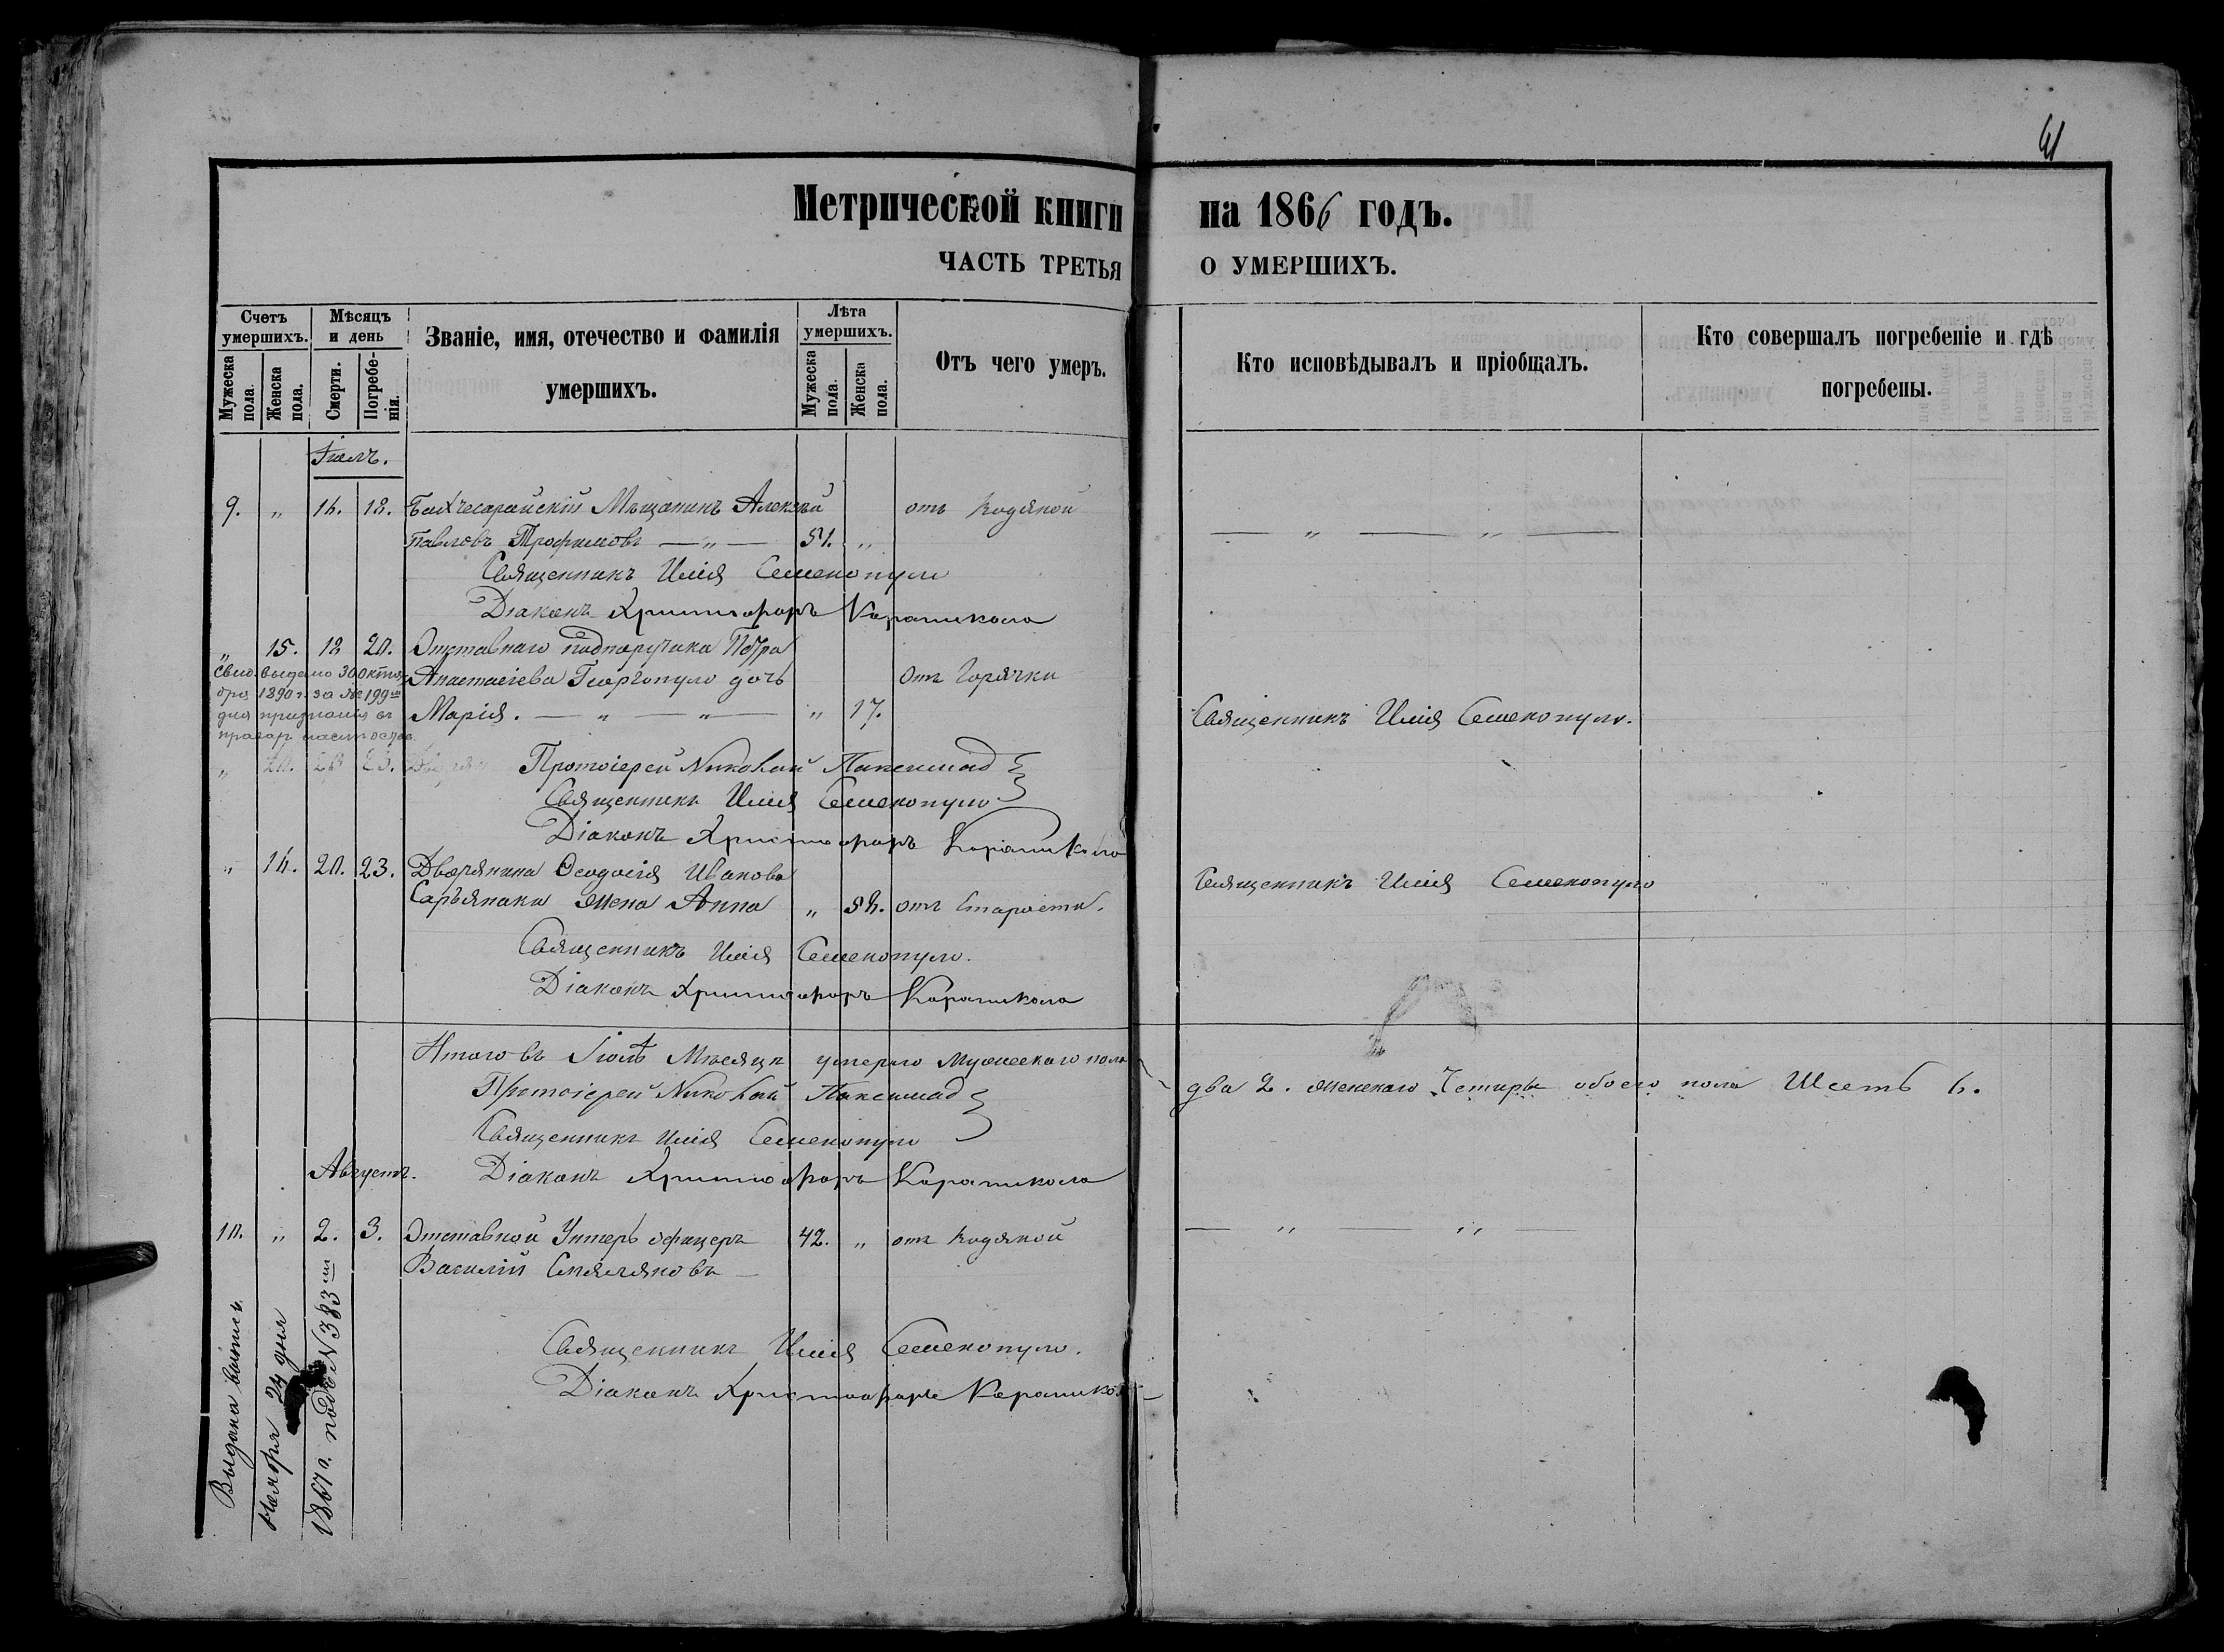 41
Метрической книги на 1866 годъ.
ЧАСТЬ ТРЕТЬЯ О УМЕРШИХЪ.
Счетъ умершихъ.
Мужеска пола.
Женска пола.
Мѣсяцъ и день
Смерти.
Погребенія.
Званіе, имя, отечество и фамилія умершихъ.
Лѣта умершихъ.
Мужеска пола.
Женска пола.
Отъ чего умеръ.
Кто исповѣдывалъ и пріобщалъ.
Кто совершалъ погребеніе и гдѣ погребены.
9. „ 16. 18. Бахчесарайскій Мѣщанинъ Алексѣй отъ Водяной
Павловъ Трофимовъ — „ — 51. „ — „ — „ —
Священникъ Илія Семенопуло
Діаконъ Христофоръ
„ 15. 18 20. Отставнаго подпоручика Петра
Анастасіева Георгопуло дочь Отъ Горячки
Марія. — „ — „ — „ 17. Священникъ Илія Семенопуло.
Свид. выдано 30 октя-
бря 1890 г. за № 199
для
„ 20. 23.
Протоіерей Николай Паксимад
Священникъ Илія Семенопуло
Діаконъ Христофоръ
„ 16. 20. 23. Дворянина Ѳеодосія Иванова
Священникъ Илія Семенопуло
жена Анна „ 56. отъ Старости.
Священникъ Илія Семенопуло.
Діаконъ Христофоръ
Итого въ Іюлѣ Мѣсяцѣ умерло Мужескаго пола
два 2. женскаго Четыре обоего пола Шесть 6.
Протоіерей Николай Паксимад
Священникъ Илія Семенопуло
Августъ. Діаконъ Христофоръ
10. „ 2. 3. Отставной Унтеръ офицеръ 42. „ отъ Водяной — „ — „ —
Василій
Священникъ Илія Семенопуло.
Діаконъ Христофоръ
Выдана выпись
Ноября 24 дня
1867 г. подъ N 383